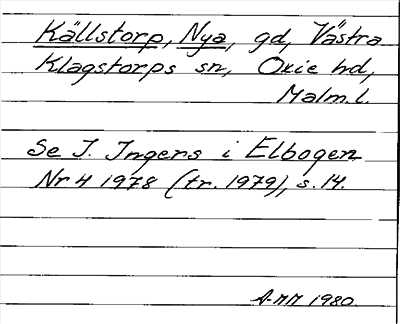 Källstorp, Nya, gd, Västra
Klagstorps sn, Oxie hd,
Malm. l.
Se I. Ingers i Elbogen
Nr 4 1978 (tr. 1979), s. 14.
A-MM 1980